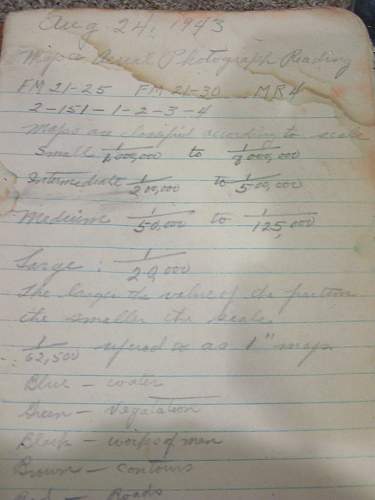 Aug 24, 1943
Map & Aerial Photograph Reading
FM 21-25 FM 21-30 MR4
2-151-1-2-3-4
Maps are classified according to scale
Small 1/1,000,000 to
Intermediate 1/200,000 to 1/500,000
Medium 1/50,000 to 1/125,000
Large: 1/20,000
The larger the value of the fraction
the smaller the scale
1/62,500 referred to as 1" map
Blue - water
Green - Vegatation
Black - works of men
Brown - contours
Red - Roads